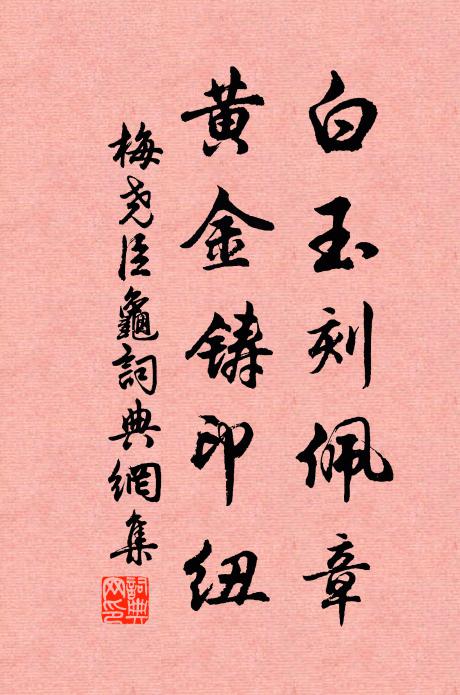 白玉刻佩章
黄金铸印纽
梅尧臣龜詞典網集
詞典網印